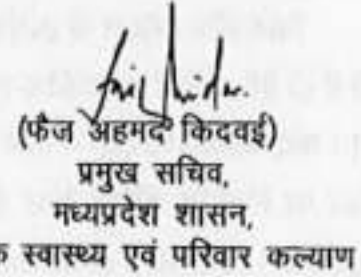 (फैज अहमद किदवई)
प्रमुख सचिव,
मध्यप्रदेश शासन,
क स्वास्थ्य एवं परिवार कल्याण